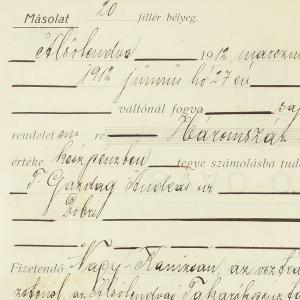 Másolat 20 fillér bélyeg.
Alsólendva 1912 március
1912 június hó 27 én
váltónál fogva
rendelet em re Háromszáz
értéke készpénzben tegye számolásba
T. Gazdag András úr
Dobri
Fizetendő Nagy Kanizsán, az osztrá
az Alsólendvai Takarékpénztá